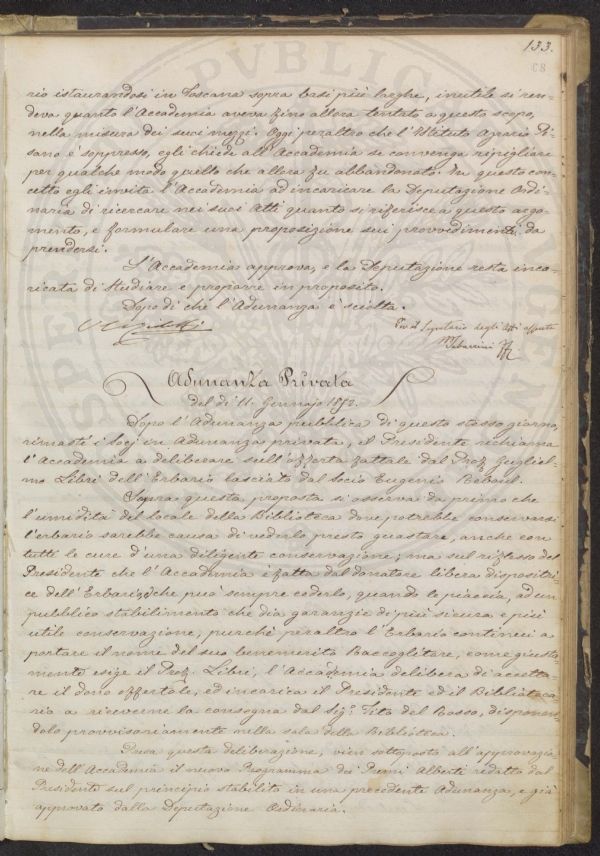 133.
rio istaurandosi in Toscana sopra basi più larghe, inutile si ren-
deva quanto l'Accademia aveva fino allora tentato a questo scopo,
nella misura dei suoi mezzi. Oggi peraltro che l'Istituto Agrario Pi-
sano è soppresso, egli chiede all'Accademia se convenga ripigliare
per qualche modo quello che allora fu abbandonato. In questo con-
cetto egli invita l'Accademia ad incaricare la Deputazione Ordi-
naria di ricercare nei suoi Atti quanto si riferisce a questo argo-
mento, e formulare una proposizione sui provvedimenti da
prendersi.
L'Accademia approva, e la Deputazione resta inca-
ricata di studiare e proporre in proposito.
Dopo di che l'Adunanza è sciolta.
Per il Segretario degli Atti assente
Tabarrini
Adunanza Privata
del dì 11. Gennajo 1852.
Dopo l'Adunanza pubblica di questo stesso giorno,
rimasti i Socj in Adunanza privata, il Presidente richiama
l'Accademia a deliberare sull'offerta fattale dal Prof. Gugliel-
mo Libri dell'Erbario lasciato dal Socio Eugenio Reboul.
Sopra questa proposta si osserva da primo che
l'umidità del locale della Biblioteca dove potrebbe conservarsi
l'erbario sarebbe causa di vederlo presto guastare, anche con
tutte le cure d'una diligente conservazione; ma sul riflesso del
Presidente che l'Accademia è fatta dal donatore libera dispositri-
ce dell'Erbario, che può sempre cederlo, quando le piaccia, ad un
pubblico stabilimento che dia garanzie di più sicura e più
utile conservazione, purchè peraltro l'Erbario continui a
portare il nome del suo benemerito Raccoglitore, come giusta-
mente esige il Prof. Libri, l'Accademia delibera di accetta-
re il dono offertole, ed incarica il Presidente ed il Biblioteca-
rio a riceverne la consegna dal Sig.r Tito del Rosso, disponen-
dolo provvisoriamente nella sala della Biblioteca.
Presa questa deliberazione, vien sottoposto all'approvazio-
ne dell'Accademia il nuovo Programma dei Premi Alberti redatto dal
Presidente sul principio stabilito in una precedente Adunanza, e già
approvato dalla Deputazione Ordinaria.